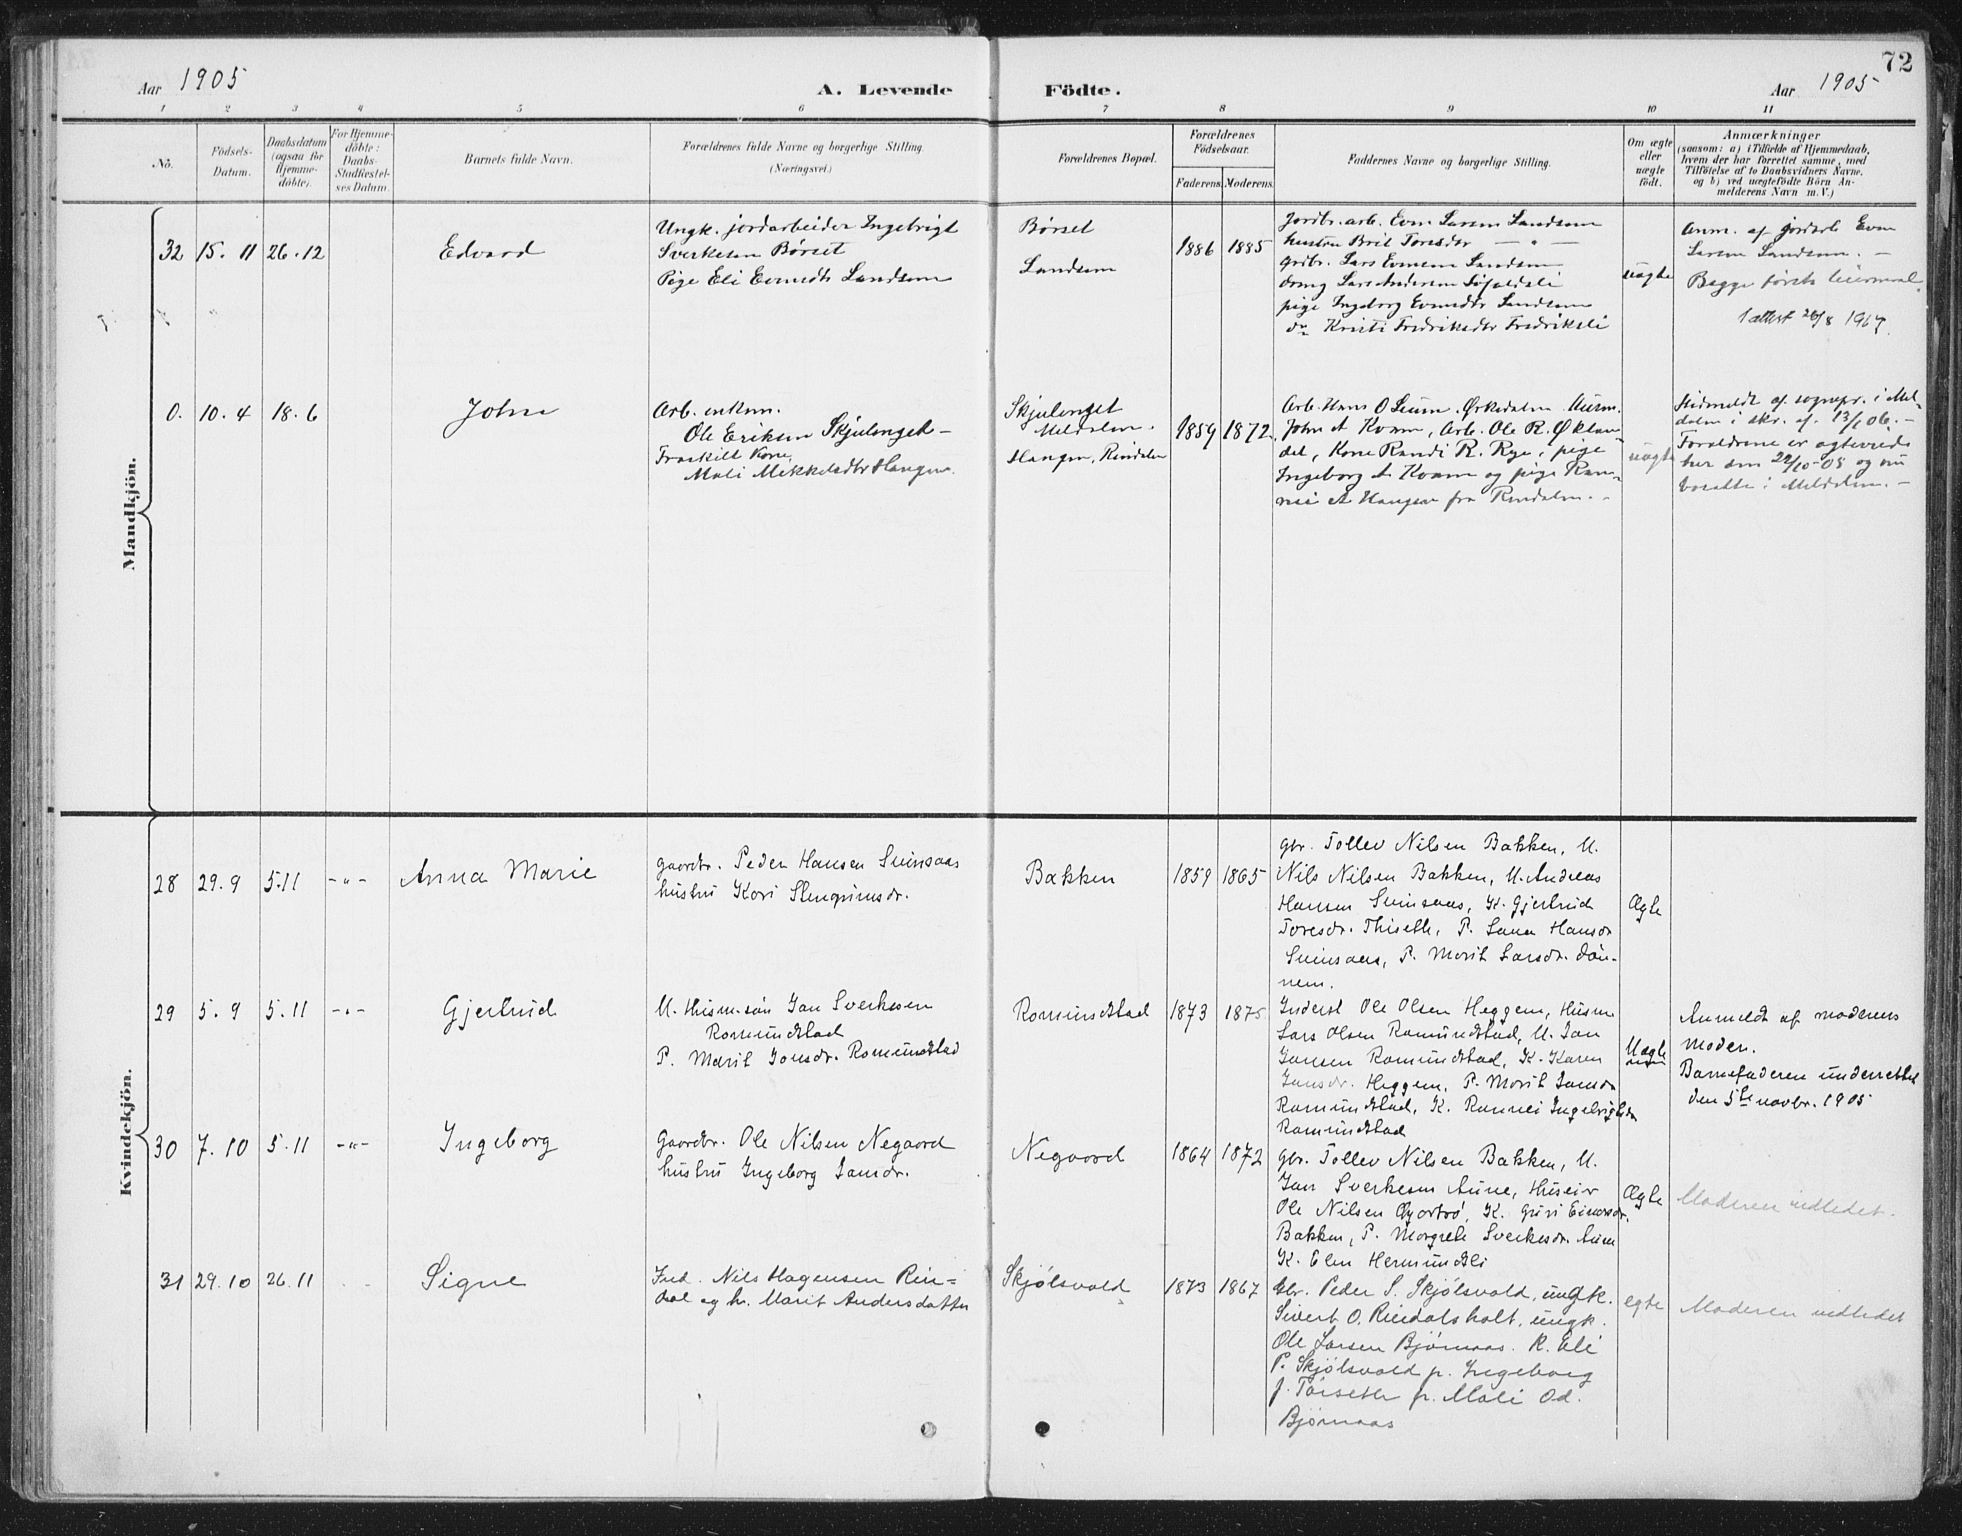 72
Aar 1905
A. Levende Födte.
Aar 1905
1 2 3 4 5 6 7 8 9 10 11
No.
Födsels-
Datum.
Daabsdatum
(ogsaa for
Hjemme-
döbte).
For Hjemme-
döbte:
Daabs-
Stadfæstel-
ses Datum.
Barnets fulde Navn.
Forældrenes fulde Navne og borgerlige Stilling.
(Næringsvei.)
Forældrenes Bopæl.
Forældrenes
Födselsaar.
Faderens. Moderens.
Faddernes Navne og borgerlige Stilling.
Om ægte
eller
uægte
födt.
Anmærkninger
(saasom: a) i Tilfælde af Hjemmedaab,
hvem der har forrettet samme, med
Tilföielse af to Daabsvidners Navne,
og b) ved uægtefödte Börn An-
melderens Navn m. V.)
Mandkjön.
32 15. 11 26. 12
Edvard
Ungk. jordarbeider Ingebrigt
Sverkesen Børset
Pige Eli Evensdtr Landsem
Børset
Landsem
1886 1885
Jordbr. arb. Even Larsen Landsem
hustru Brit Toresdtr — " —
Grdbr. Lars Evensen Landsem
dreng Lars Andersen
pige Ingeborg Evensdtr Landsem
do Kristi Fredriksdtr Fredriksli
uægte
Anm. af jordarb Even
Larsen Landsem. —
Begge første leiermaal.
1 attest 26/8 1967.
0. 10. 4 18. 6
John
Arb. enkem.
Ole Eriksen Skjulenget —
Fraskilt Kone,
Mali Mikkelsdtr Haugen.
Skjulenget
Meldalen.
Haugen, Rindalen
1859 1872
Arb. Hans O Leium. Ørkedalen
John A Kvam, Arb. Ole R. Øklan-
det, Kone Randi R. Rye, pige
Ingeborg A Kvam og pige Ran-
nei A Haugen fra Rindalen. -
uægte
Hidmeldt af sognepr. i Mel-
dalen i skr. af 13/1 06. —
Forældrene er ægteviede
her den 22/10-05 og nu
bosatte i Meldalen. —
Kvindekjön.
28 29. 9 5.11 -"-
Anna Marie
gaardbr. Peder Hansen Svinsaas
hustru Kari Stengrimsdr.
Bakken
1859 1865
gbr. Tollev Nilsen Bakken, U.
Nils Nilsen Bakken, U. Andreas
Hansen Svinsaas, K. Gjertrud
Toresdr. Thiseth, P. Lana Hansdr
Svinsaas, P. Marit Larsdr. Dön-
nem.
Ægte
29 5. 9 5. 11 -"-
Gjertrud
U. Husm. søn Jan Sverkesen
Romundstad
P. Marit Jonsdr. Romundstad
Romundstad
1873 1875
Inderst Ole Olsen Heggem, Husm
Lars Olsen Romundstad, U. Jan
Jansen Romundstad, K. Karen
Jansdr. Heggem, P. Marit Jansdr
Romundstad, K. Rannei Ingebrigtsdr
Romundstad
Uægte
Anmeldt af moderens
moder.
Barnefaderen underrettet
den 5te novbr. 1905
30 7. 10 5.11 -"-
Ingeborg
Gaardbr. Ole Nilsen Negaard
hustru Ingeborg Jansdr.
Negaard
1864 1872
Gbr. Tollev Nilsen Bakken, U.
Jan Sverkesen Aune, Huseier
Ole Nilsen K. Guri Einarsdr.
Bakken, P. Margrete Sverkesdr. Aune
K. Elen Hermundsli
Ægte
Moderen indledet.
31 29. 10 26. 11
Signe
Ind. Nils Hagensen Rin-
dal og h. Marit Andersdatter
Skjølsvold
1873 1867
Gbr. Peder S. Skjølsvold, ungk.
Sivert O. Rindalsholt, ungk.
Ole Larsen Bjørnaas. K. Eli
P. Skjølsvold p. Ingeborg
J. Torseth p. Mali Od.
Bjørnaas
egte
Moderen indledet